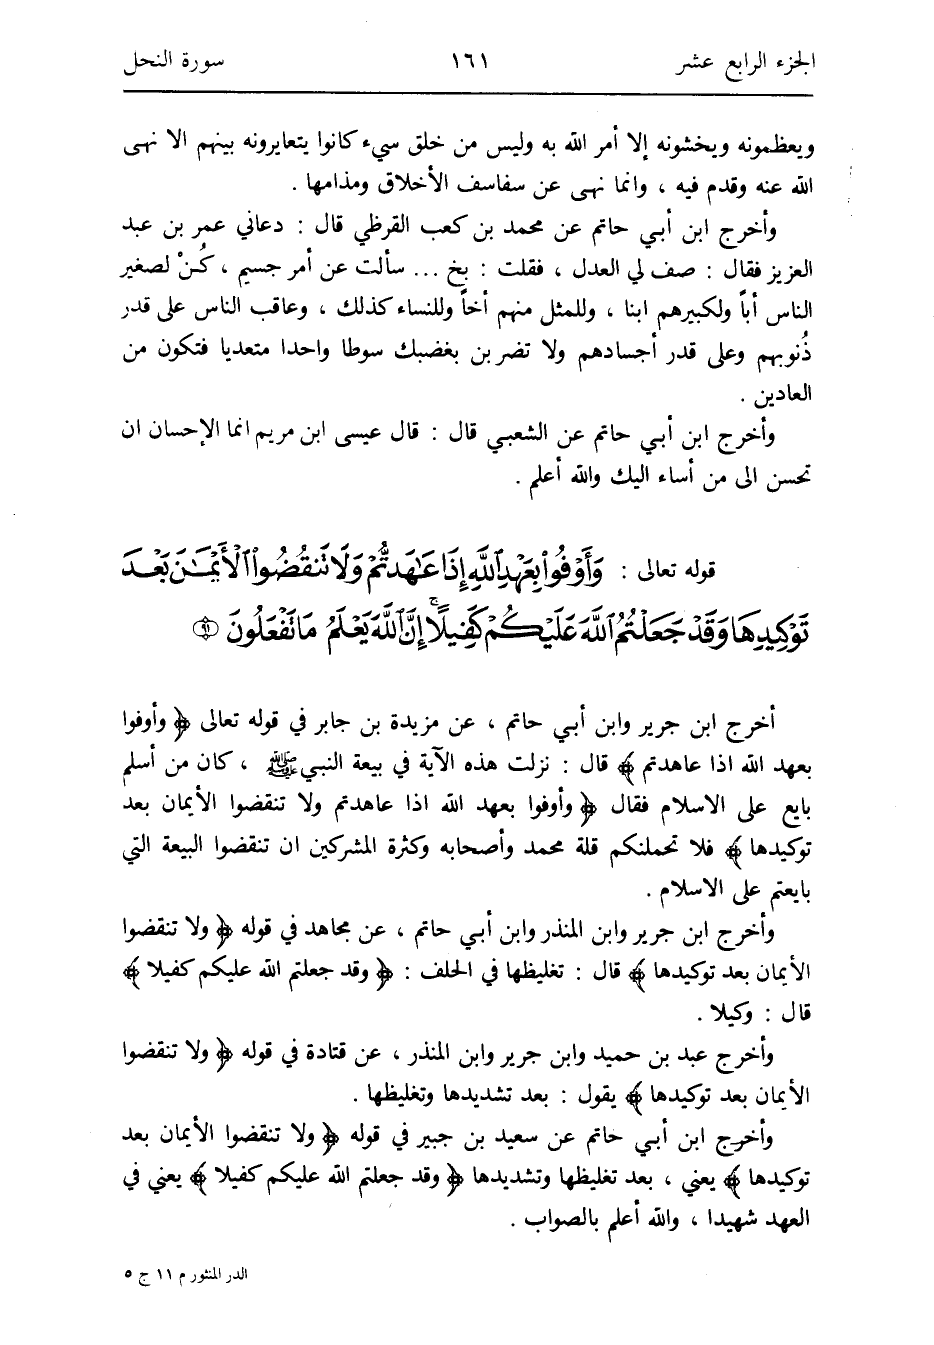 الجزء الرابع عشر ١٦١ سورة النحل
ويعظمونه ويخشونه إلا أمر الله به وليس من خلق سيء كانوا يتعايرونه بينهم الا نهى
الله عنه وقدم فيه ، وانما نهى عن سفاسف الأخلاق ومذامها .
وأخرج ابن أبي حاتم عن محمد بن كعب القرظي قال : دعاني عمر بن عبد
العزيز فقال : صف لي العدل ، فقلت : بخ ... سألت عن أمر جسيم ، كُنْ لصغير
الناس أباً ولكبيرهم ابنا ، وللمثل منهم أخاً وللنساء كذلك ، وعاقب الناس على قدر
ذُنوبهم وعلى قدر أجسادهم ولا تضر بن بغضبك سوطا واحدا متعديا فتكون من
العادين .
وأخرج ابن أبي حاتم عن الشعبي قال : قال عيسى ابن مريم انما الإحسان ان
تحسن الى من أساء اليك والله أعلم .
قوله تعالى : وَأَوْفُواْ بِعَهْدِ ٱللَّهِ إِذَا عَٰهَدتُّمْ وَلَا تَنقُضُواْ ٱلْأَيْمَٰنَ بَعْدَ
تَوْكِيدِهَا وَقَدْ جَعَلْتُمُ ٱللَّهَ عَلَيْكُمْ كَفِيلًاۚ إِنَّ ٱللَّهَ يَعْلَمُ مَا تَفْعَلُونَ ۝٩١
أخرج ابن جرير وابن أبي حاتم ، عن مزيدة بن جابر في قوله تعالى ﴿ وأوفوا
بعهد الله اذا عاهدتم ﴾ قال : نزلت هذه الآية في بيعة النبي ﷺ ، كان من أسلم
بايع على الاسلام فقال ﴿ وأوفوا بعهد الله اذا عاهدتم ولا تنقضوا الأيمان بعد
توكيدها ﴾ فلا تحملنكم قلة محمد وأصحابه وكثرة المشركين ان تنقضوا البيعة التي
بايعتم على الاسلام .
وأخرج ابن جرير وابن المنذر وابن أبي حاتم ، عن مجاهد في قوله ﴿ ولا تنقضوا
الأيمان بعد توكيدها ﴾ قال : تغليظها في الحلف : ﴿ وقد جعلتم الله عليكم كفيلا ﴾
قال : وكيلا .
وأخرج عبد بن حميد وابن جرير وابن المنذر ، عن قتادة في قوله ﴿ ولا تنقضوا
الأيمان بعد توكيدها ﴾ يقول : بعد تشديدها وتغليظها .
وأخرج ابن أبي حاتم عن سعيد بن جبير في قوله ﴿ ولا تنقضوا الأيمان بعد
توكيدها ﴾ يعني ، بعد تغليظها وتشديدها ﴿ وقد جعلتم الله عليكم كفيلا ﴾ يعني في
العهد شهيدا ، والله أعلم بالصواب .
الدر المنثور م ١١ ج ٥